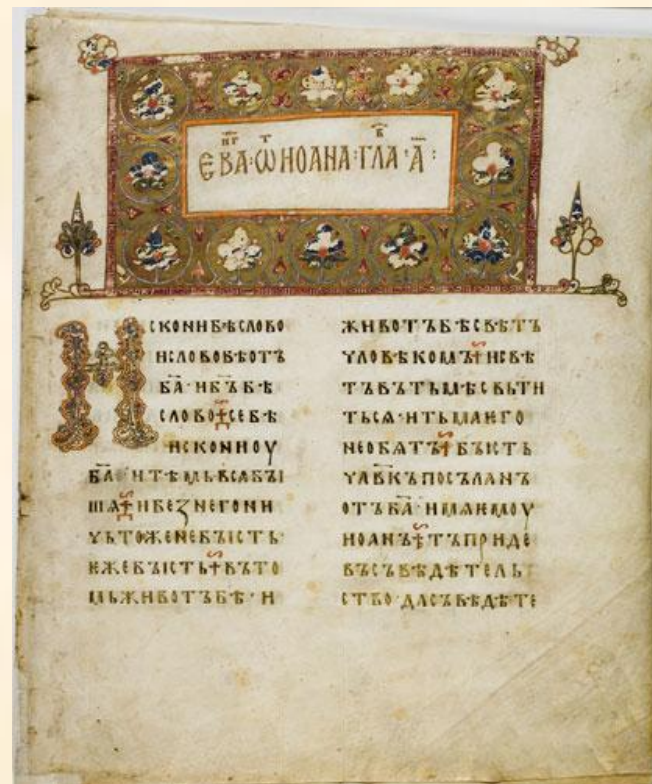 ЄВАНГ · ѾТ ИОАНА · ГЛАВ · А҃ :
ИСКОНИ БѢ СЛОВО
И СЛОВО БѢ ОТЪ
БА҃ · И БЪ҃ БѢ
СЛОВО ⁜ СЕ БѢ
ИСКОНИ ОУ
БА҃ · И ТѢМЬ ВСЯ БЫ
ШѦ ⁜ И БЕЗ НЕГО НИ
ЧЬТОЖЕ НЕ БЫСТЬ ·
ЕЖЕ БЫСТЬ ⁜ ВЪ ТО
МЬ ЖИВОТЪ БѢ · И
ЖИВОТЪ БѢ СВѢТЪ
ЧЛОВѢКОМЪ ⁜ И СВѢ
ТЪ ВЪ ТЬМѢ СВЬТИ
ТЬСѦ · И ТЬМА ѤГО
НЕ ОБѦТЪ ⁜ БЫСТЬ
ЧЛВ҃КЪ ПОСЪЛАНЪ
ОТЪ БА҃ · ИМѦ ѤМОУ
ИОАНЪ ⁜ ТЪ ПРИДЕ
ВЪ СЪВѢДѢТЕЛЬ
СТВО · ДА СЪВѢДѢТЕ